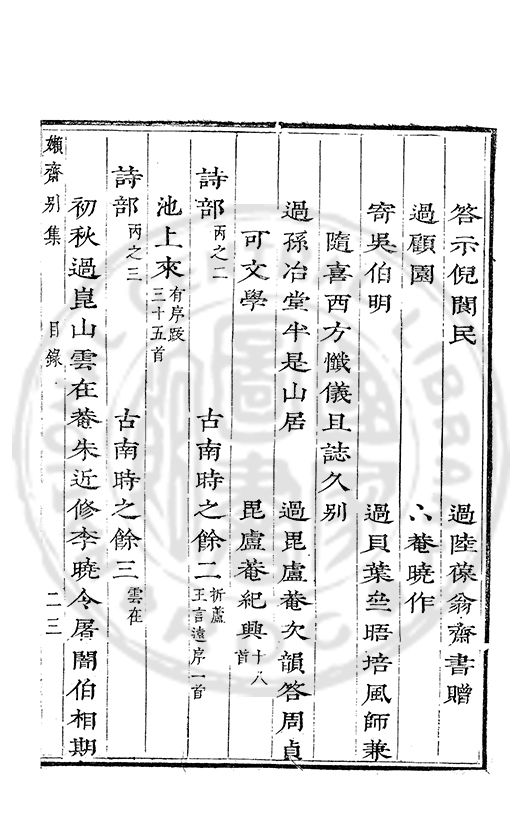 答示倪闇民　過陸葆翁齋書贈
過顧園　六菴曉作
寄吳伯明　過貝葉坐晤培風師兼
隨喜西方懺儀且誌久別
過孫冶堂半是山居　過毘盧菴次韻答周貞
可文學　毘盧菴紀興十八首
詩部丙之二　古南時之餘二折蘆王言遠序一首
池上來有序跋三十五首
詩部丙之三　古南時之餘三雲在
初秋過崑山雲在菴朱近修李曉令屠闇伯相期
嬾齋別集　目錄　二三